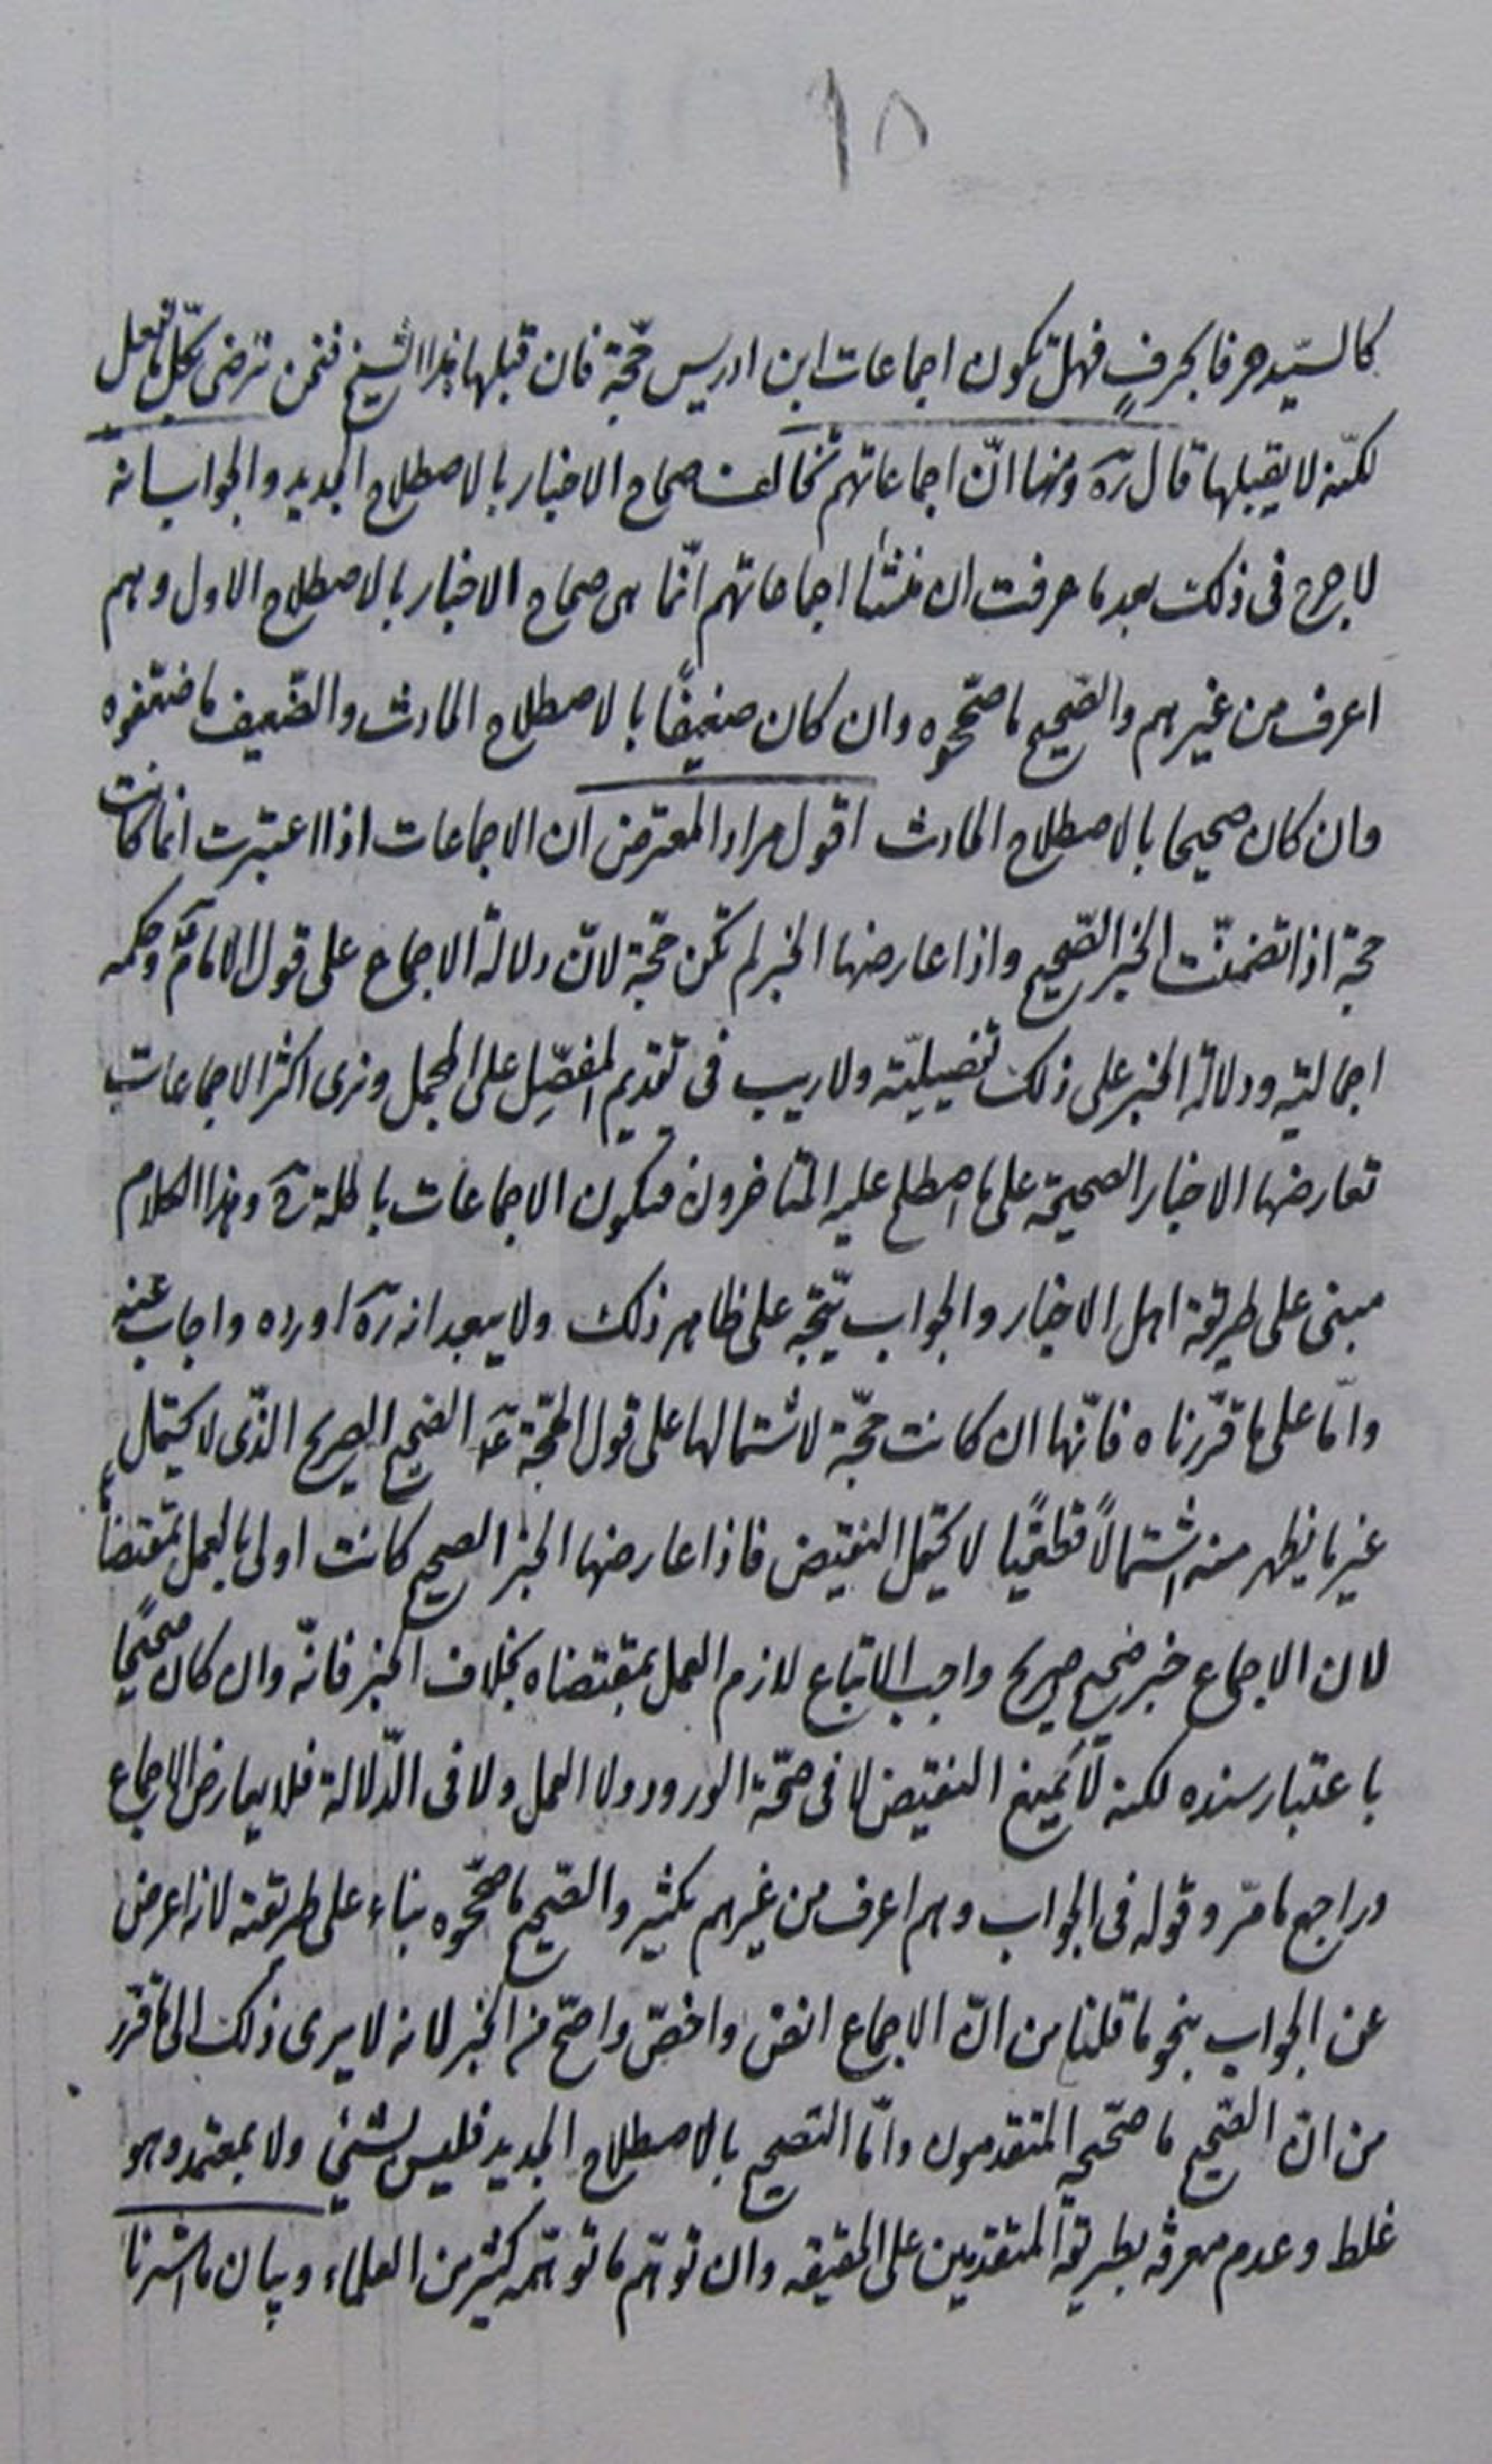 ١٨
كالسيّد حرفا بحرفٍ فهل تكون اجماعات ابن ادريس حجّة فان قبلها هذا الشيخ فنحن نرضى بكلّ ما فعل
لكنّه لا يقبلها قال ره ومنها انّ اجماعاتهم تخالف صحاح الاخبار بالاصطلاح الجديد والجواب انه
لا حرج فى ذلك بعد ما عرفت ان منشأ اجماعاتهم انّما هى صحاح الاخبار بالاصطلاح الاول وهم
اعرف من غيرهم والصّحيح ما صحّحوه وان كان ضعيفًا بالاصطلاح الحادث والضّعيف ما ضعّفوه
وان كان صحيحا بالاصطلاح الحادث اقول مراد المعترض ان الاجماعات اذا اعتبرت انما كانت
حجة اذا تضمنّت الخبر الصّحيح واذا عارضها الخبر لم تكن حجّة لانّ دلالة الاجماع على قول الامام ع وحكمه
اجماليّه ودلالة الخبر على ذلك تفصيليّه ولا ريب فى تقديم المفصّل على المجمل ونرى اكثر الاجماعات
تعارضها الاخبار الصحيحة على ما اصطلح عليه المتاخرون فتكون الاجماعات باطلة وهذا الكلام
مبنى على طريقة اهل الاخبار والجواب يتّجه على ظاهر ذلك ولا يبعد انه ره اورده واجاب عنه
وامّا على ما قرّرناه فانّها ان كانت حجّة لاشتمالها على قول الحجّة ع الصّحيح الصريح الذّى لا يحتمل
غير ما يظهر منه اشتمالاً قطعيّا لا يحتمل النقيض فاذا عارضها الخبر الصحيح كانت اولى بالعمل بمقتضاها
لان الاجماع خبر صحيح صريح واجب الاتباع لازم العمل بمقتضاه بخلاف الخبر فانّه وان كان صحيحًا
باعتبار سنده لكنه لا يمنع النقيض لا فى صحّة الورود ولا العمل ولا فى الدّلالة فلا يعارض الاجماع
وراجع ما مرّ وقوله فى الجواب وهم اعرف من غيرهم بكثير والصّحيح ما صحّحوه بناء على طريقته لانه اعرض
عن الجواب بنحو ما قلنا من انّ الاجماع انصّ واخصّ واصحّ من الخبر لانه لا يرى ذلك الى ما قرّر
من انّ الصّحيح ما صحّحه المتقدمون وامّا التصحيح بالاصطلاح الجديد فليس بشئ ولا بمعتمد وهو
غلط وعدم معرفه بطريقة المتقدّمين على الحقيقه وان توهّم ما توهّمه كثير من العلماء وبيان ما اشرنا